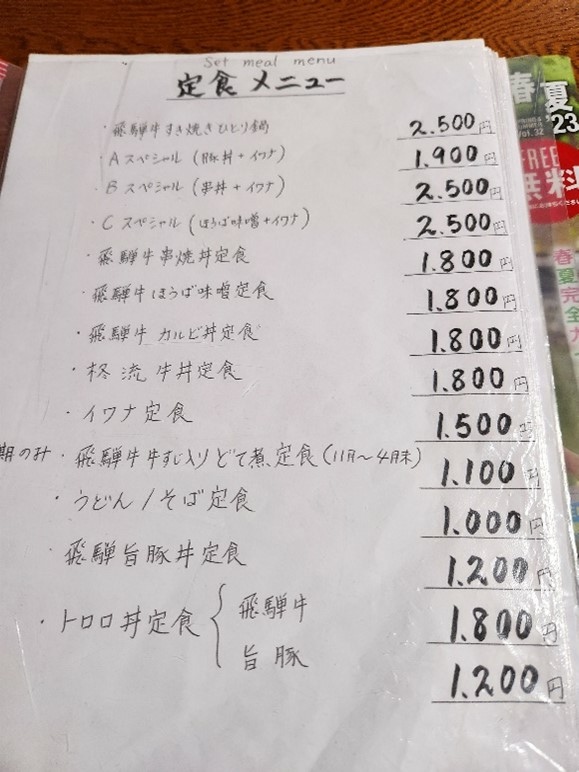 Set meal menu
定食メニュー
・飛騨牛すき焼きひとり鍋 2.500円
・Aスペシャル(豚丼+イワナ) 1.900円
・Bスペシャル(串丼+イワナ) 2.500円
・Cスペシャル(ほうば味噌+イワナ) 2.500円
・飛騨牛串焼丼定食 1.800円
・飛騨牛ほうば味噌定食 1.800円
・飛騨牛カルビ丼定食 1.800円
・柊流牛丼定食 1.800円
・イワナ定食 1.500円
期のみ・飛騨牛牛すじ入りどて煮定食(11月〜4月末) 1.100円
・うどん/そば定食 1.000円
・飛騨旨豚丼定食 1.200円
・トロロ丼定食{飛騨牛 1.800円
旨豚 1.200円
春夏
'23
Vol.32
FREE
無料
春夏完全